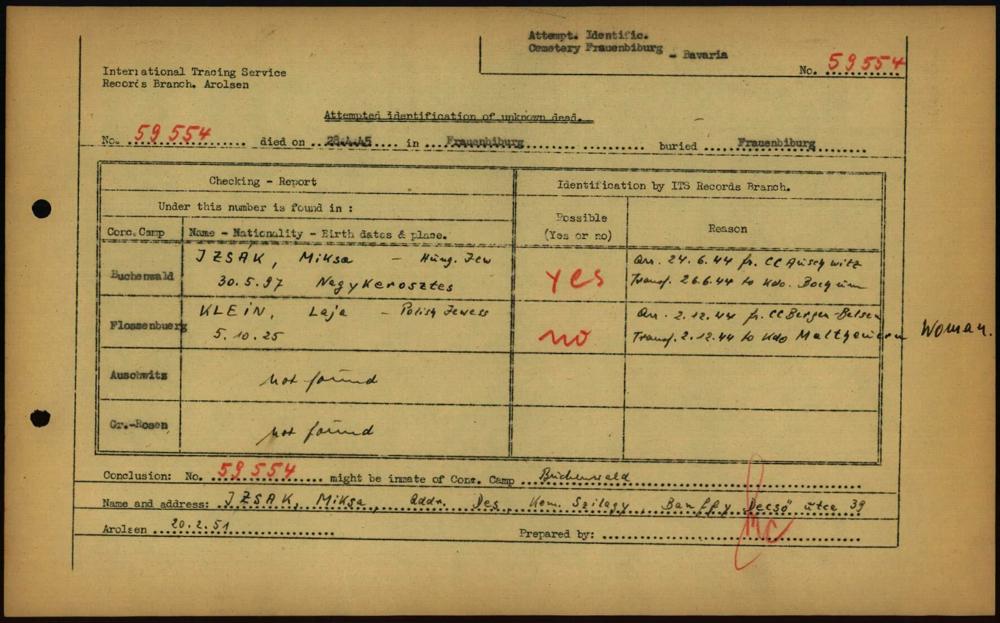 Attempt. Identific.
Cemetery Frauenbiburg - Bavaria
No. 59554
International Tracing Service
Records Branch. Arolsen
Attempted identification of unknown dead.
No. 59554 died on 28.4.45 in Frauenbiburg buried Frauenbiburg
Checking - Report
Identification by ITS Records Branch.
Under this number is found in :
Conc. Camp
Name - Nationality - Birth dates & place.
Possible
(Yes or no)
Reason
Buchenwald
IZSAK, Miksa - Hung. Jew
30.5.97 Nagykerosztes
yes
Arr. 24.6.44 fr. CC Auschwitz
Transf. 26.6.44 to Kdo. Bochum
Flossenbuerg
KLEIN, Laja - Polish Jewess
5.10.25
no
Arr. 2.12.44 fr. CC Bergen-Belsen
Transf. 2.12.44 to Kdo Maltheuern
Woman.
Auschwitz
not found
Gr.-Rosen
not found
Conclusion: No. 59554 might be inmate of Conc. Camp Buchenwald
Name and address: IZSAK, Miksa, addr. Des, Kom. Szilagy, Banffy Decsö utca 39
Arolsen 20.2.51
Prepared by: